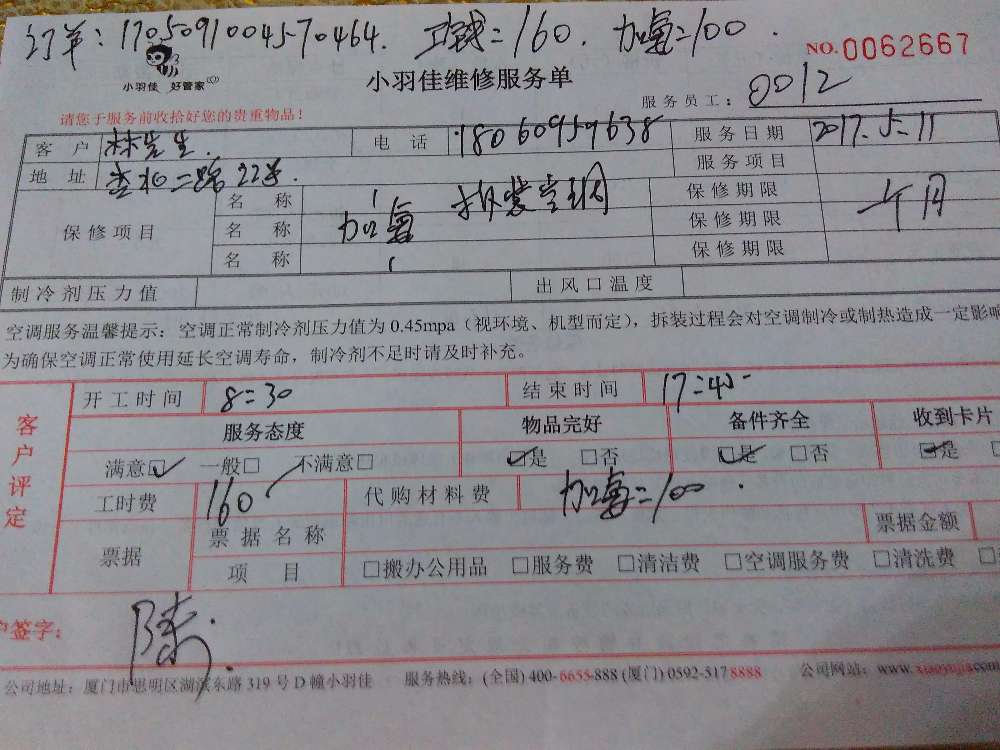 订单：1705091004570464. 工钱=160. 加氟=100.
NO.0062667
小羽佳 好管家
小羽佳维修服务单
服务员工：0012
请您于服务前收拾好您的贵重物品！
客户 林先生. 电话 18060959638 服务日期 2017.5.11
地址 二路22号. 服务项目
保修项目 名称 拆装空调 保修期限
名称 加氟 保修期限 一个月
名称 保修期限
制冷剂压力值 出风口温度
空调服务温馨提示：空调正常制冷剂压力值为0.45mpa（视环境、机型而定），拆装过程会对空调制冷或制热造成一定影响
为确保空调正常使用延长空调寿命，制冷剂不足时请及时补充。
客户评定
开工时间 8=30 结束时间 17=45
服务态度 物品完好 备件齐全 收到卡片
满意☑ 一般□ 不满意□ ☑是 □否 ☑是 □否 ☑是
工时费 160 代购材料费 加氟=100.
票据 票据名称 票据金额
项目 □搬办公用品 □服务费 □清洁费 □空调服务费 □清洗费
户签字：
公司地址：厦门市思明区湖滨东路319号D幢小羽佳 服务热线：(全国) 400-6655-888 (厦门) 0592-5178888 公司网站：www.xiaoyujia.com